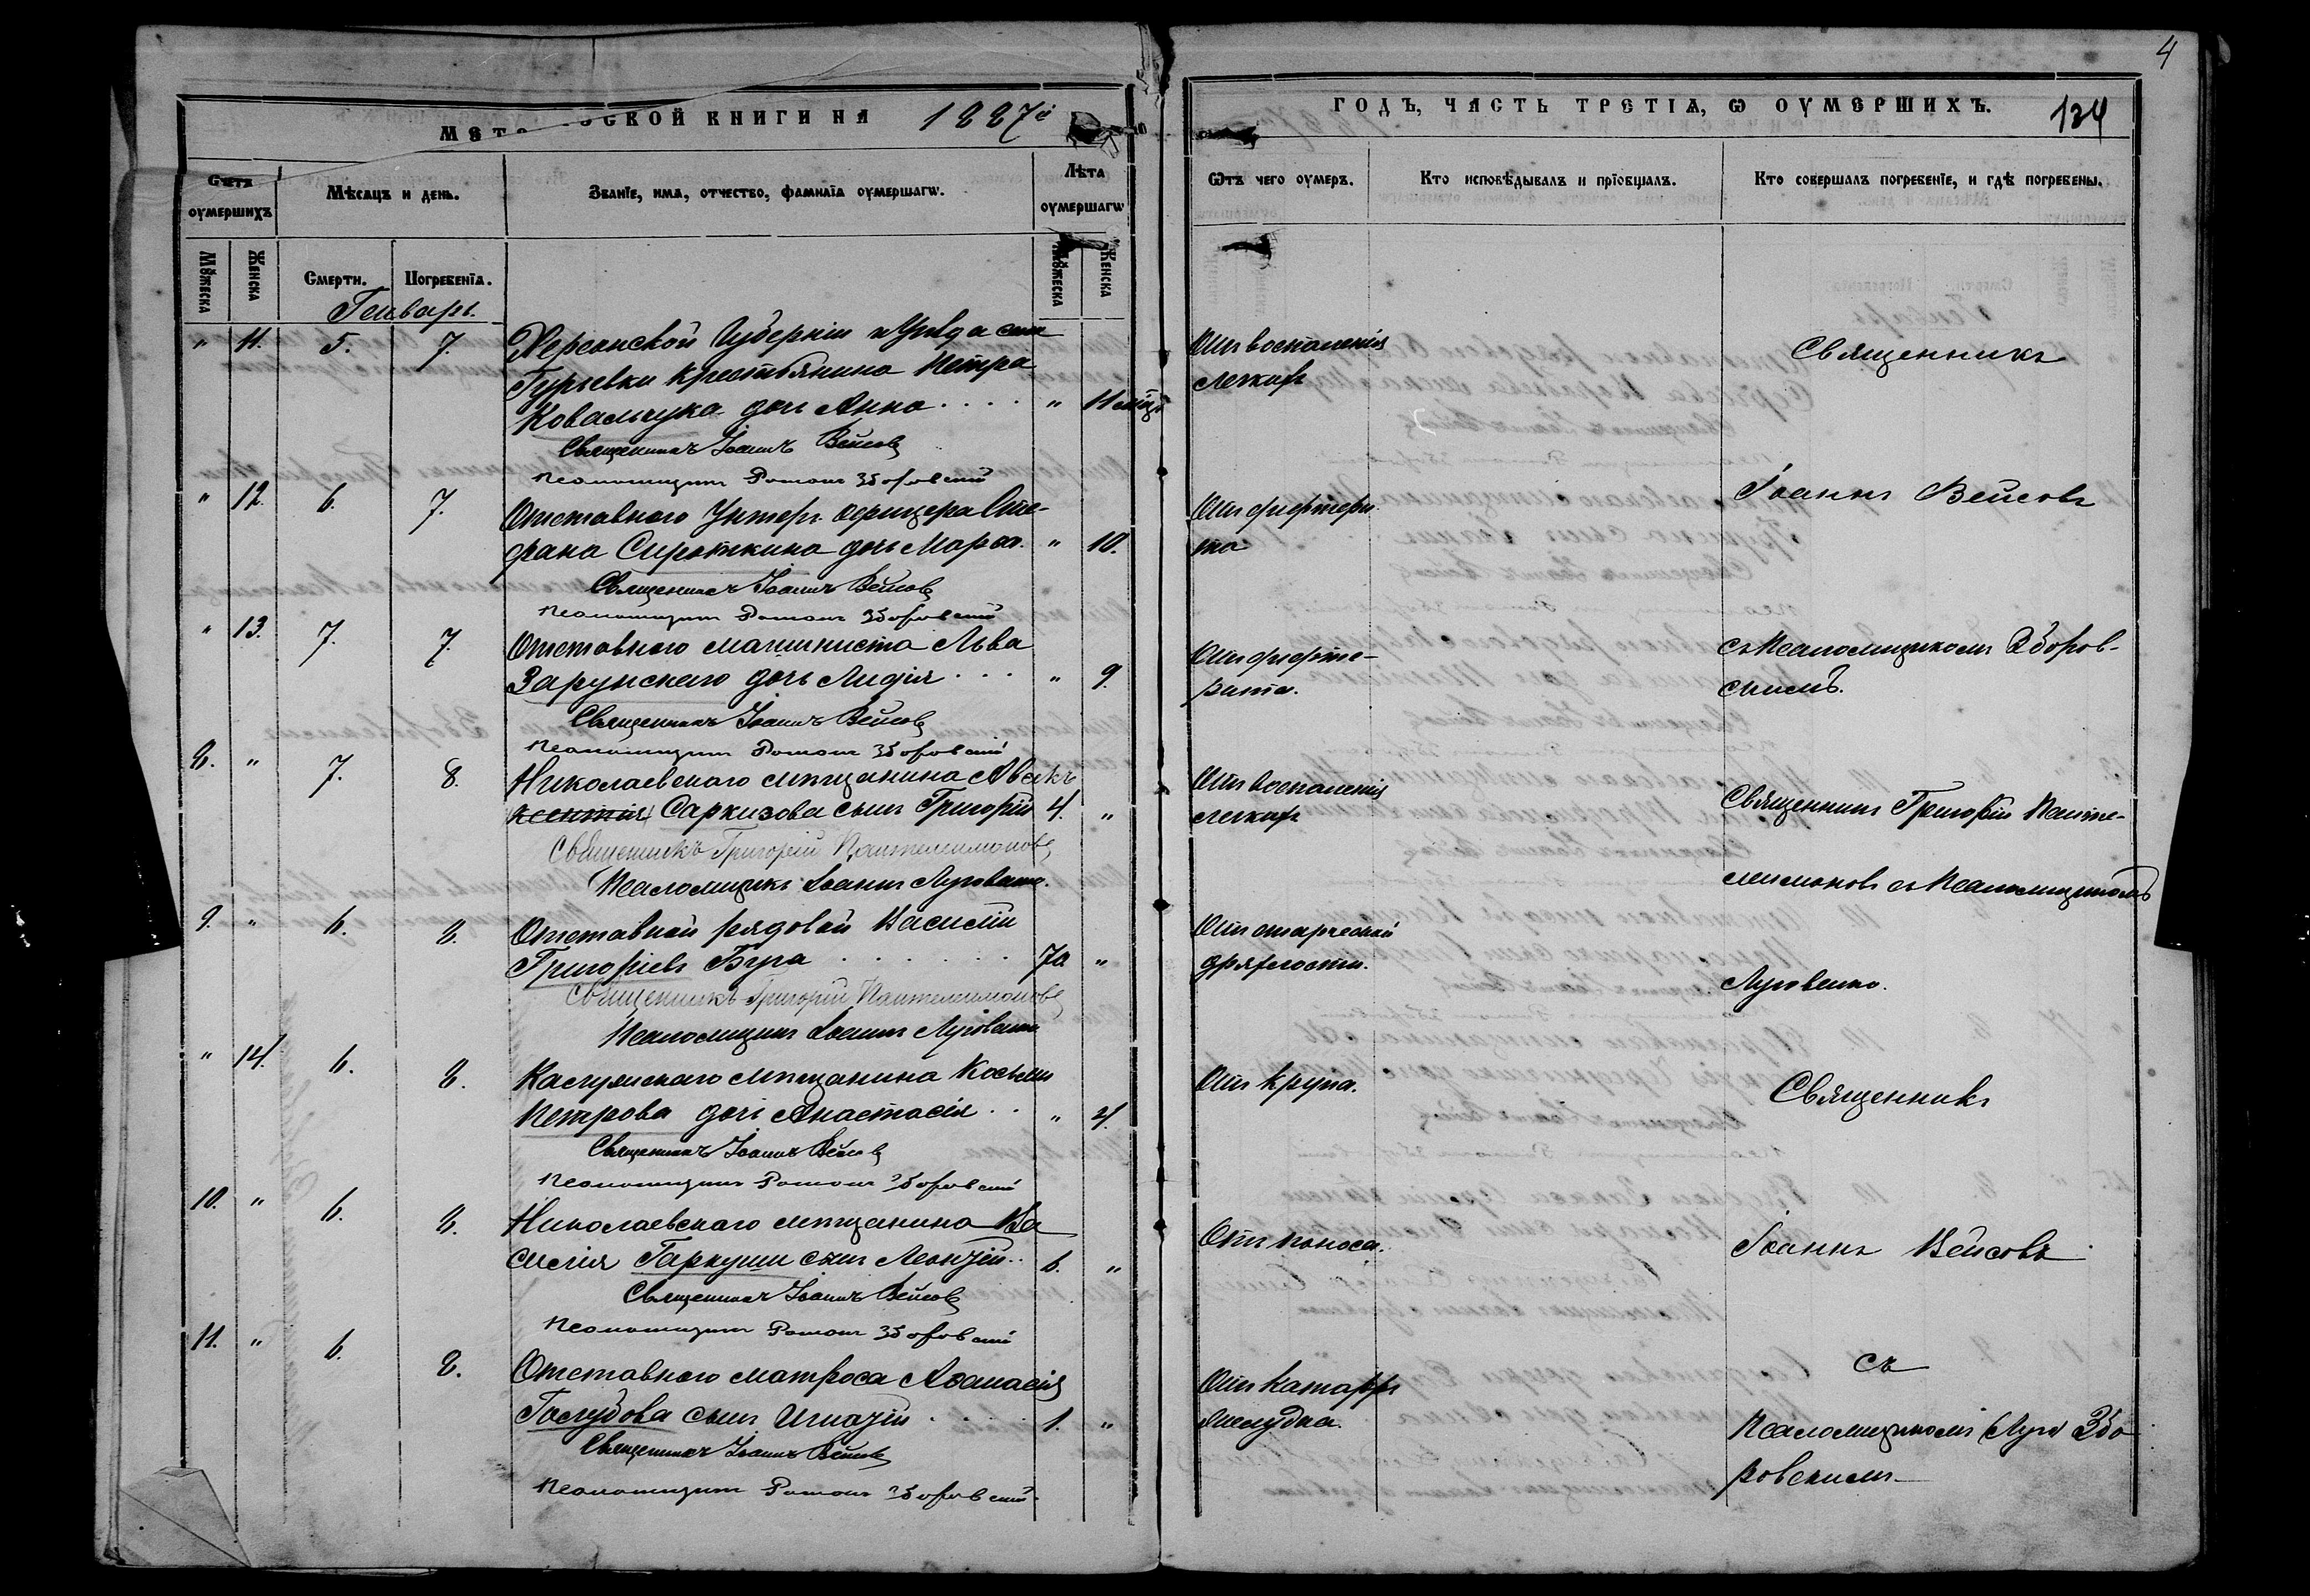 4
МЕТ ЧЕСКОЙ КНИГИ НА 1887й
ГОДЪ, ЧАСТЬ ТРЕТІѦ, Ѡ ОУМЕРШИХЪ.
134
Счетъ оумершихъ
Мѣсяцъ и день.
Званіе, имя, отчество, фамиліа оумершагѡ.
Лѣта оумершагѡ
Ѿтъ чего оумеръ.
Кто исповѣдывалъ и пріобщалъ.
Кто совершалъ погребеніе, и гдѣ погребены.
Мꙋжеска
Женска
Смерти.
Погребеніа.
Мꙋжеска
Женска
Генварь.
" 11. 5. 7. Херсонской Губерніи и Уѣзда села
Гурьевки крестьянина Петра
Ковальчука дочь Анна . . . . " 11 мѣц.
Отъ воспаленія
легкихъ
Священникъ
Священникъ Іоаннъ Вейсовъ
Псаломщикъ Романъ Зборовскій
" 12. 6. 7. Отставного Унтеръ-офицера Сте-
фана Сироткина дочь Марія. " 10.
Отъ дифтери-
та
Іоаннъ Вейсовъ
Священникъ Іоаннъ Вейсовъ
Псаломщикъ Романъ Зборовскій
" 13. 7. 7. Отставного машиниста Льва
Зарунскаго дочь Лидія . . . " 9.
Отъ дифте-
рита.
съ Псаломщикомъ Зборов-
скимъ.
Священникъ Іоаннъ Вейсовъ
Псаломщикъ Романъ Зборовскій
8. " 7. 8. Николаевскаго мѣщанина
Саркизова сынъ Григорій 4. "
Отъ воспаленія
легкихъ
Священникъ Григорій Панте-
Священникъ Григорій Пантелеимоновъ
Псаломщикъ Іоаннъ Луговенко.
леимоновъ съ Псаломщикомъ
9. " 6. 8. Отставной рядовой Василій
Григорьевъ Буга . . . . . . 70 "
Отъ старческой
дряхлости.
Луговенко.
Священникъ Григорій Пантелеимоновъ
Псаломщикъ Іоаннъ Луговенко
" 14. 6. 8. мѣщанина Косьмы
Петрова дочь Анастасія . . " 4.
Отъ крупа.
Священникъ
Священникъ Іоаннъ Вейсовъ
Псаломщикъ Романъ Зборовскій
10. " 6. 8. Николаевскаго мѣщанина Ва
силія Гаркуши сынъ Леонтій . . 6. "
Отъ поноса.
Іоаннъ Вейсовъ
Священникъ Іоаннъ Вейсовъ
Псаломщикъ Романъ Зборовскій
11. " 6. 8. Отставного матроса Аѳанасія
Голубова сынъ Игнатій . . . . . 1. "
Отъ катарра
желудка.
съ
Псаломщикомъ (Луго Збо
ровскимъ
Священникъ Іоаннъ Вейсовъ
Псаломщикъ Романъ Зборовскій